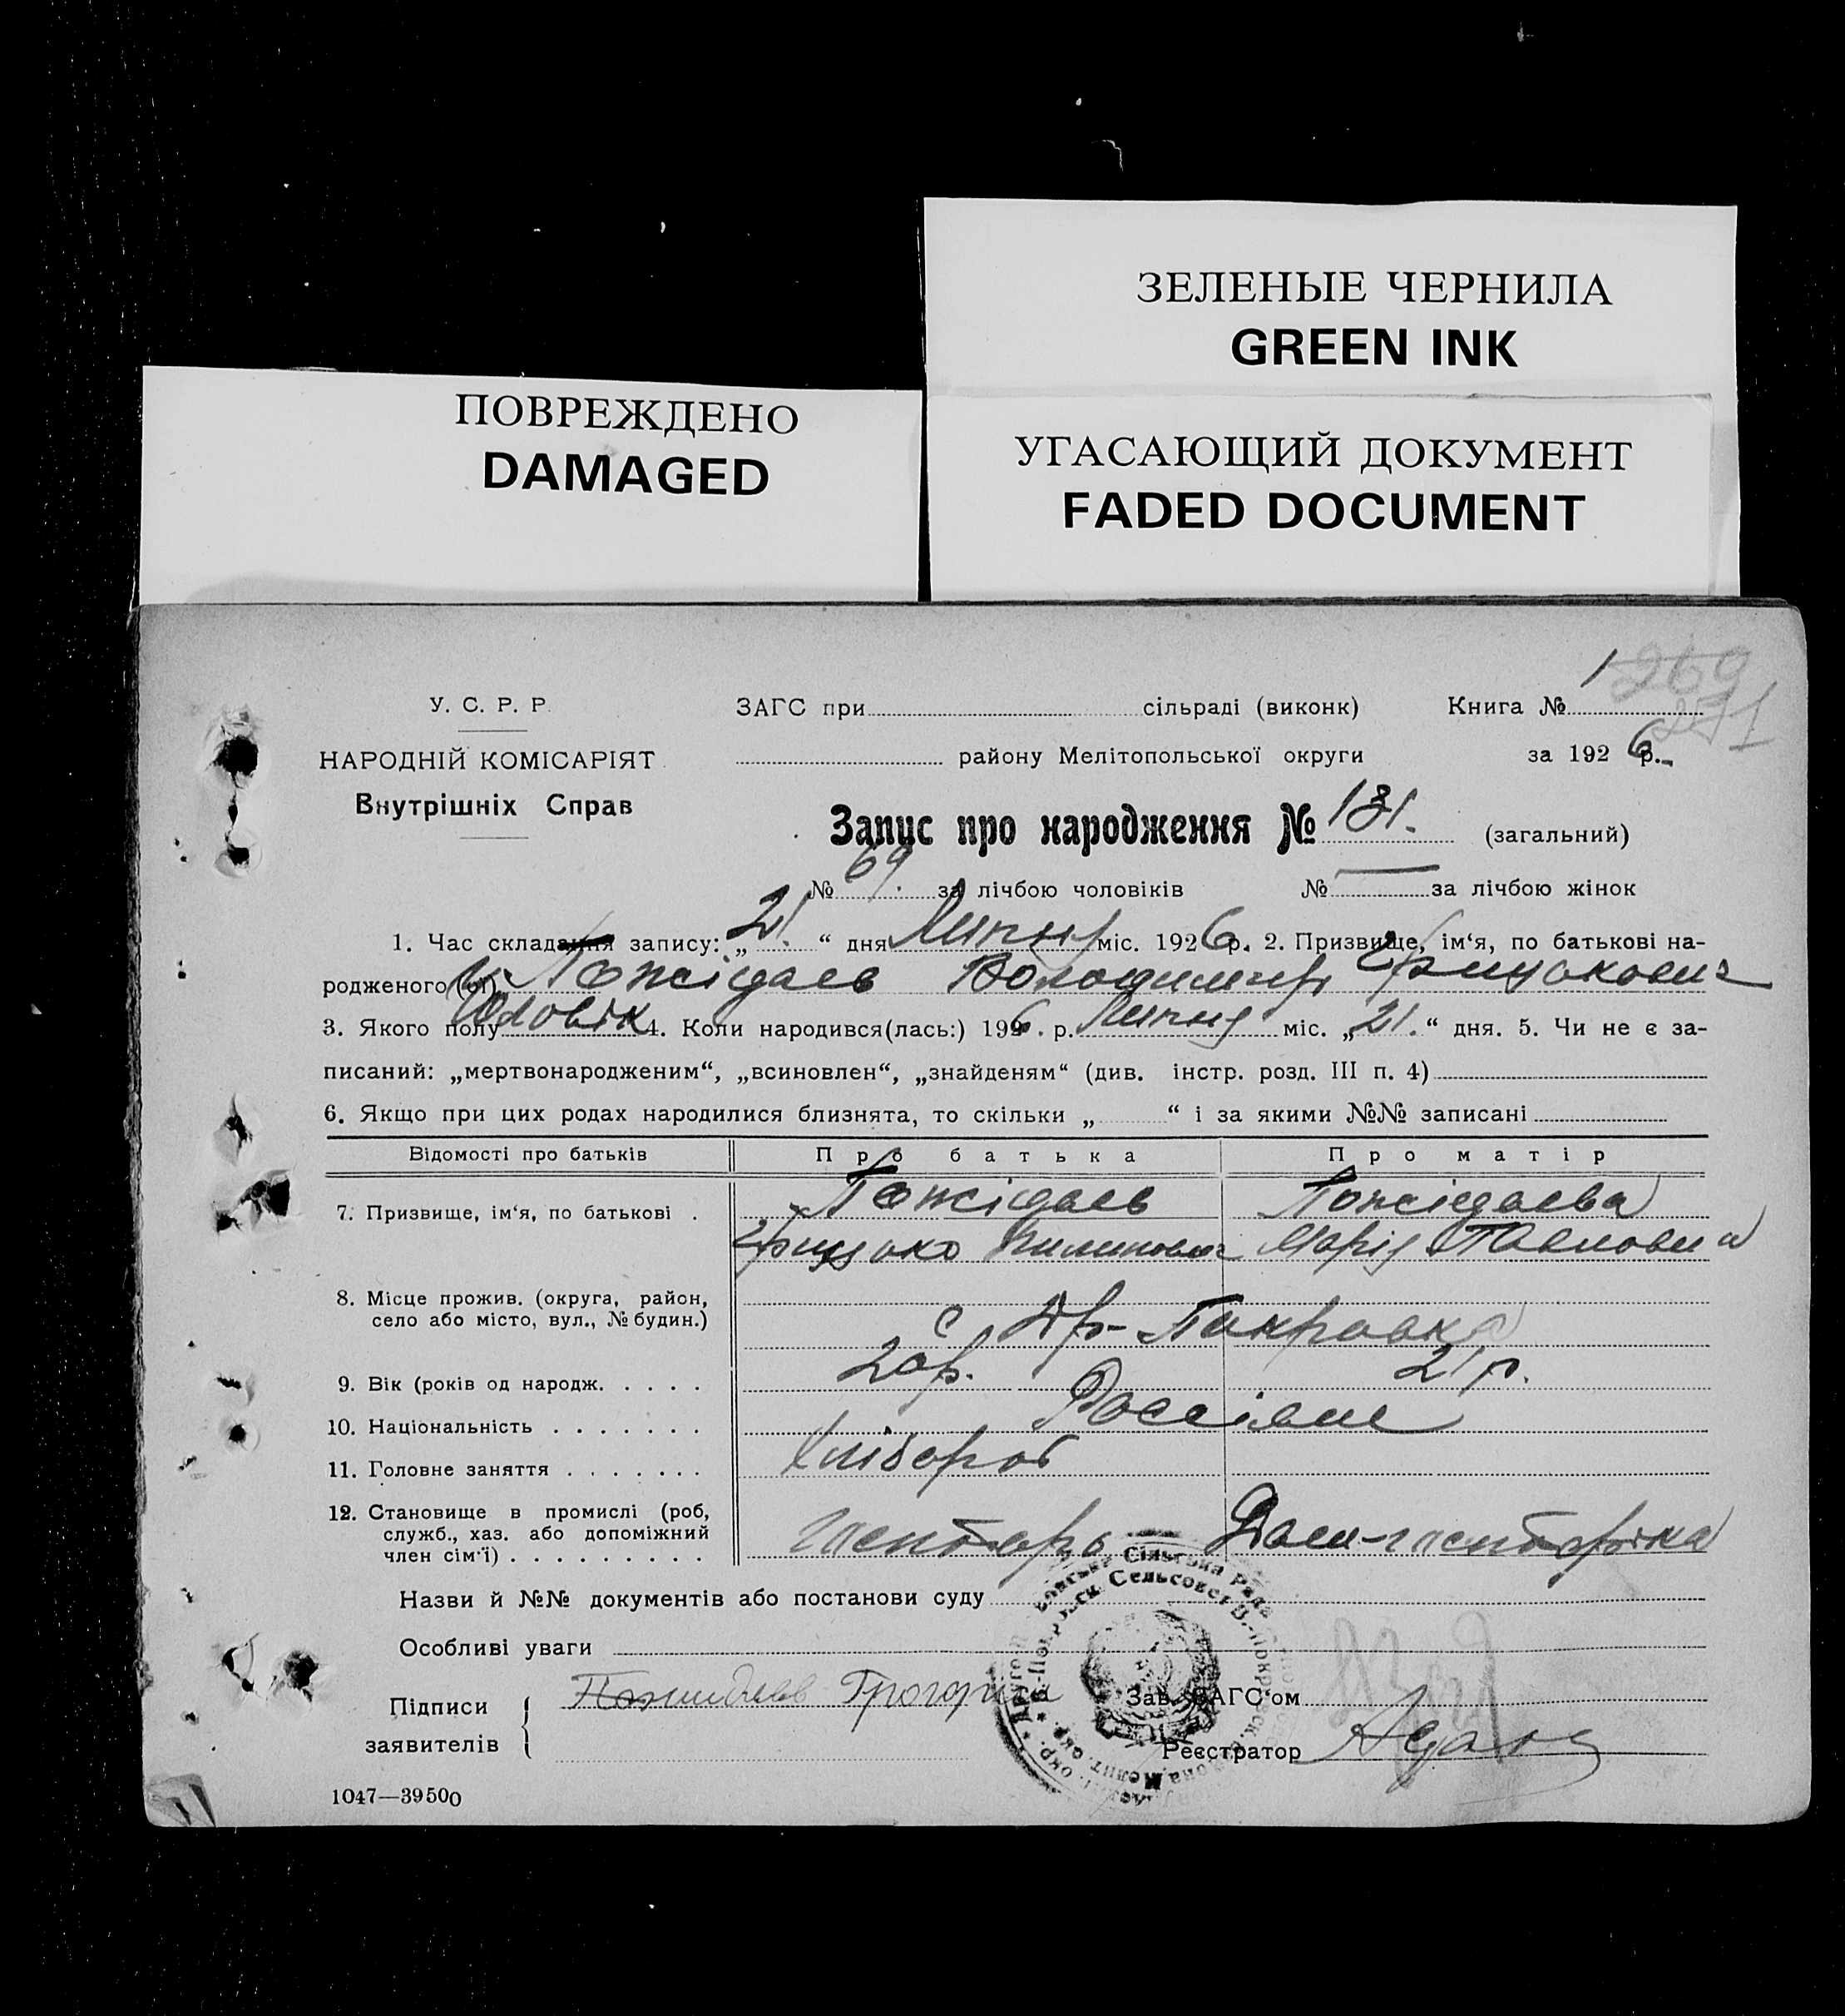 ЗЕЛЕНЫЕ ЧЕРНИЛА
GREEN INK
ПОВРЕЖДЕНО
DAMAGED
УГАСАЮЩИЙ ДОКУМЕНТ
FADED DOCUMENT
269
271
У. С. Р. Р. ЗАГС при сільраді (виконк) Книга № 1
НАРОДНІЙ КОМІСАРІЯТ району Мелітопольської округи за 1926 р.
Внутрішніх Справ Запис про народження № 131. (загальний)
№ 69. за лічбою чоловіків № — за лічбою жінок
1. Час складання запису: „21.“ дня Липня міс. 1926 р. 2. Призвище, ім‘я, по батькові на-
родженого (ої) Пожідаєв Володимир Грицькович
3. Якого полу Чоловік 4. Коли народився(лась:) 1926. р. Липня міс. „21.“ дня. 5. Чи не є за-
писаний: „мертвонародженим“, „всиновлен“, „знайденям“ (див. інстр. розд. III п. 4)
6. Якщо при цих родах народилися близнята, то скільки „ “ і за якими №№ записані
Відомості про батьків Про батька Про матір
7. Призвище, ім‘я, по батькові . Пожідаєв Пожідаєва
Грицько Пилипович Марія Павловна
8. Місце прожив. (округа, район,
село або місто, вул., № будин.) с Др-Покровка
9. Вік (років од народж. . . . . 20р. 21р.
10. Національність . . . . . . . Россіяне
11. Головне заняття . . . . . . . Хлібороб
12. Становище в промислі (роб,
служб., хаз. або допоміжний
член сім‘ї) . . . . . . . . .
Назви й №№ документів або постанови суду
Особливі уваги
Підписи Пожидаев Григорий Зав. ЗАГС‘ом
заявителів Реєстратор
1047—39500